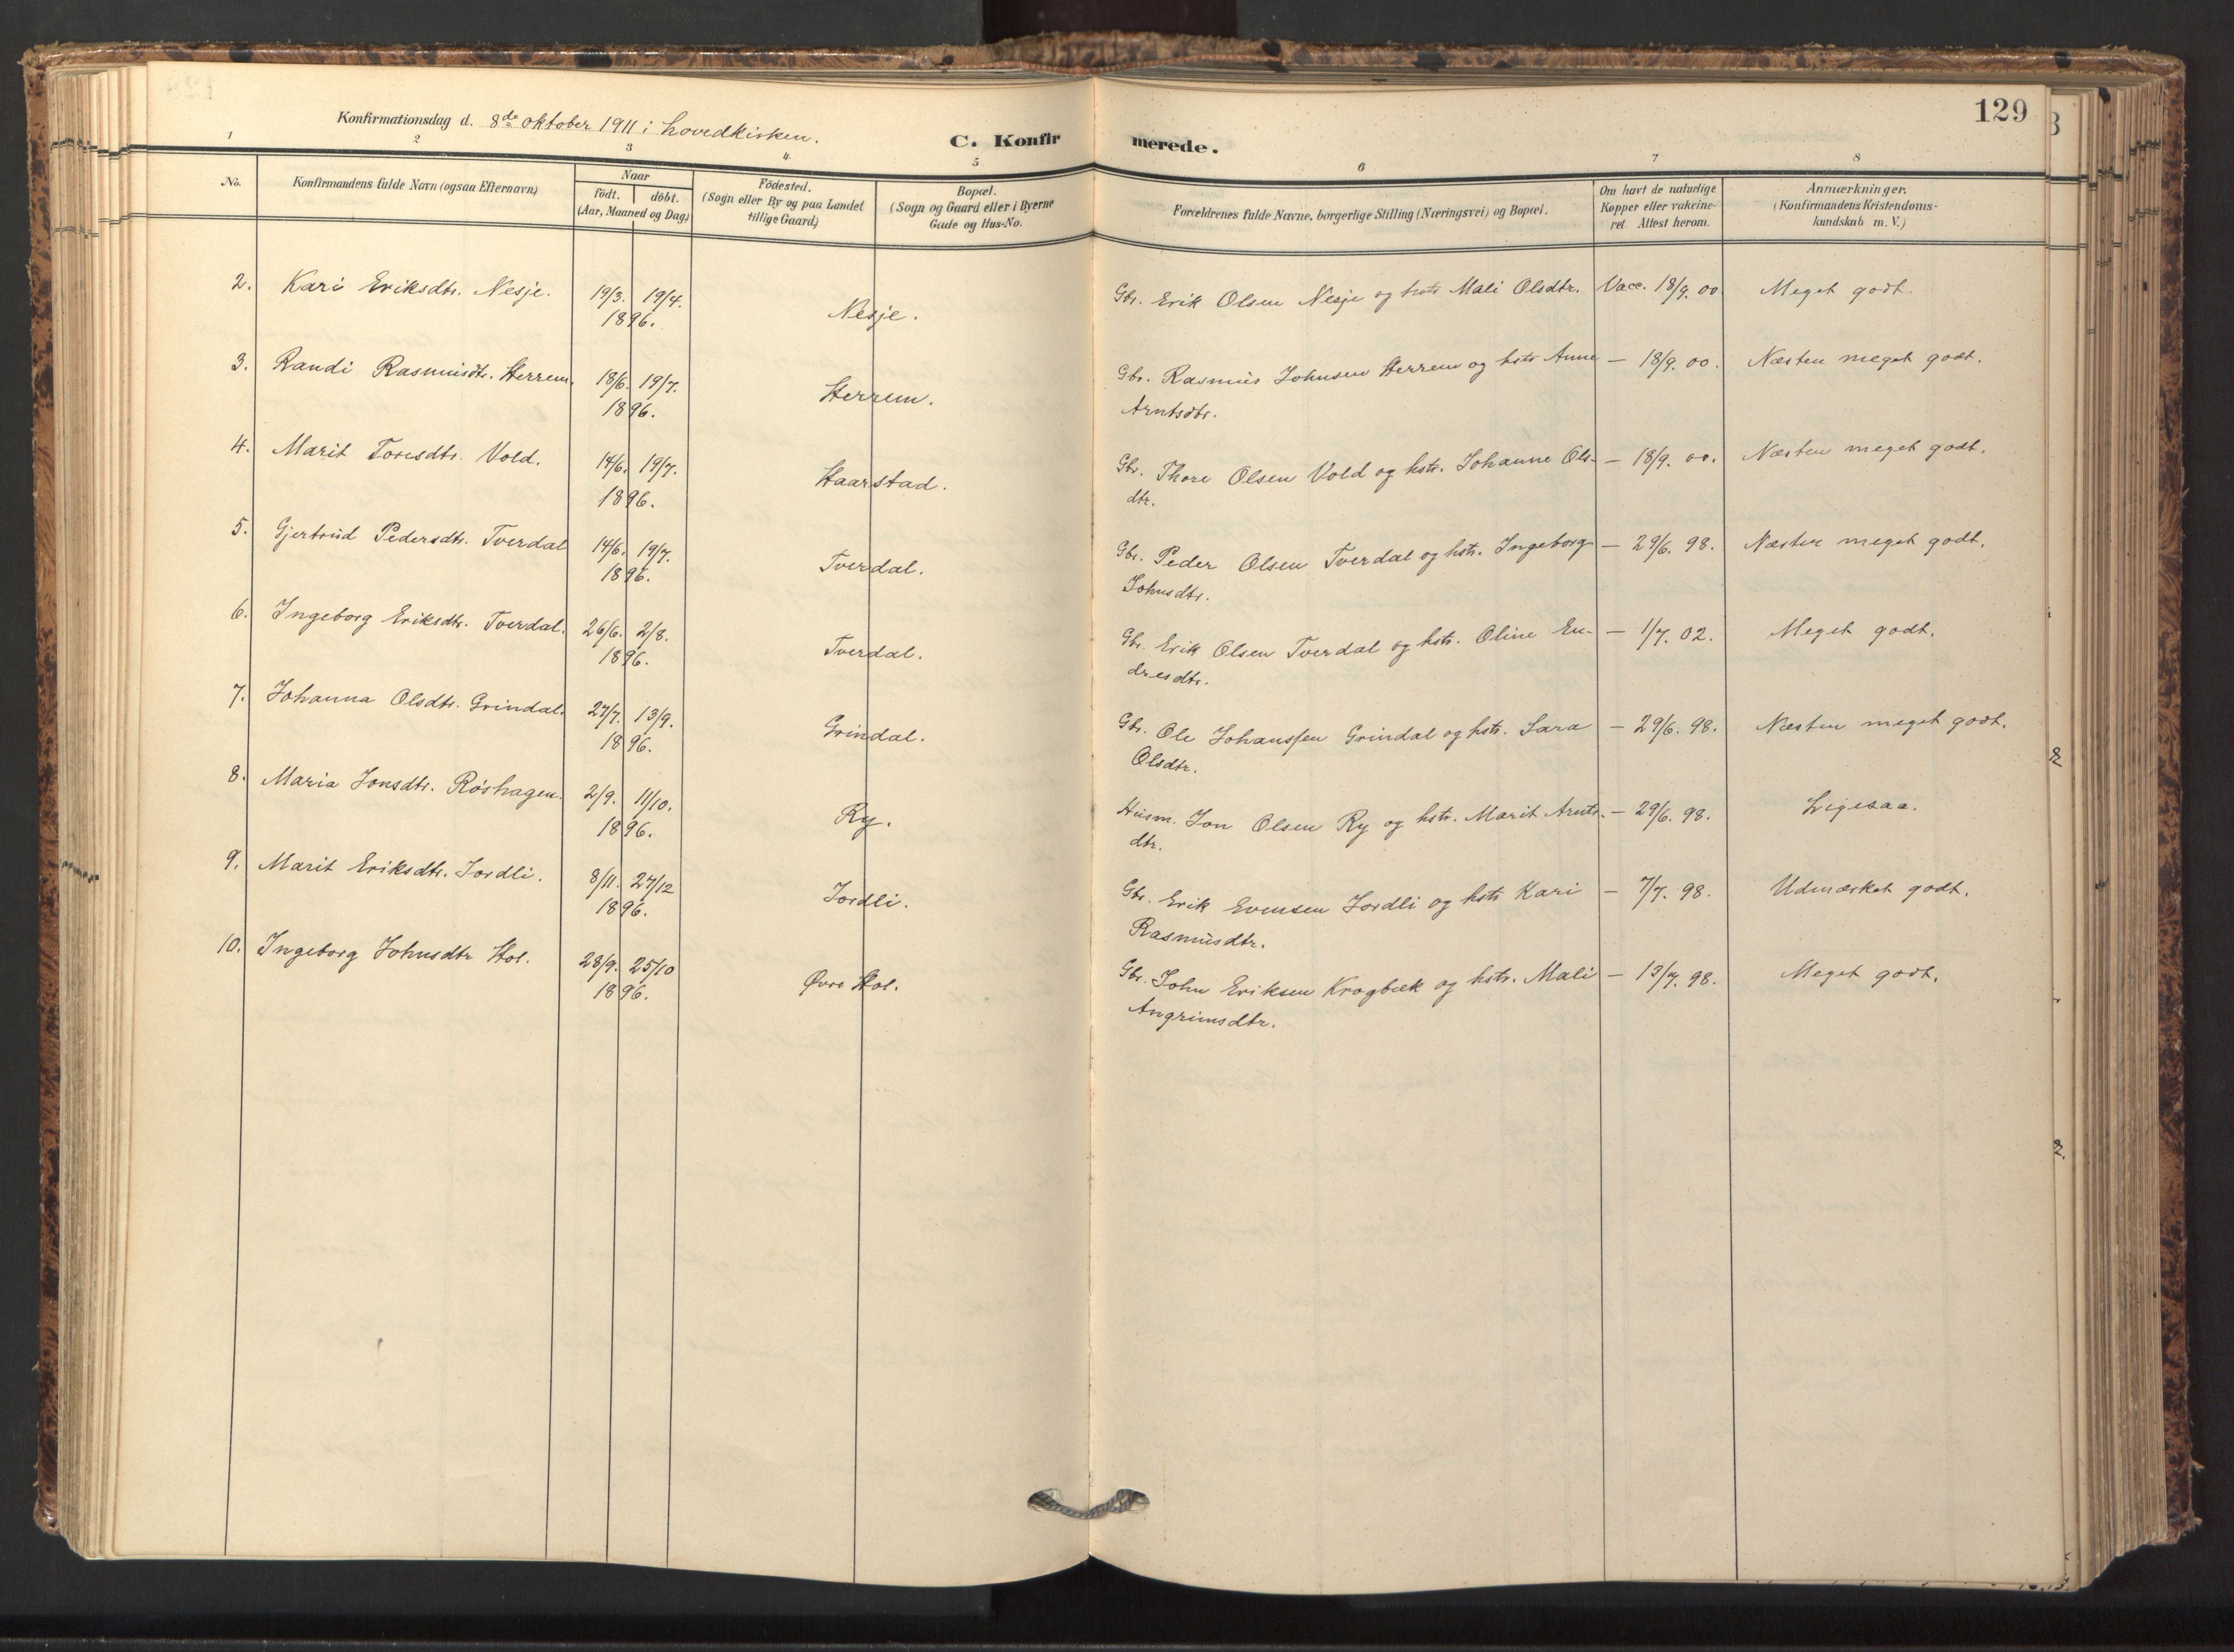 129
Konfirmationsdag d. 8de oktober 1911 i hovedkirken.
C. Konfir merede.
1 2 3 4 5 6 7 8
No.
Konfirmandens fulde Navn (ogsaa Efternavn)
Naar
födt. döbt.
(Aar, Maaned og Dag)
Födested.
(Sogn eller By og paa Landet
tillige Gaard)
Bopæl.
(Sogn og Gaard eller i Byerne
Gade og Hus-No.
Forældrenes fulde Navne, borgerlige Stilling (Næringsvei) og Bopæl.
Om havt de naturlige
Kopper eller vakcine-
ret Attest herom.
Anmærkninger.
(Konfirmandens Kristendoms-
kundskab m. V.)
2. Kari Eriksdtr. Nesje. 19/3. 19/4. Nesje. Gbr. Erik Olsen Nesje og hstr Mali Olsdtr. Vacc. 18/9. 00. Meget godt.
1896.
3. Randi Rasmusdtr. Herrem. 18/6. 19/7. Herrem. Gbr. Rasmus Johnsen Herrem og hstr Anne — 18/9. 00. Næsten meget godt.
1896. Arntsdtr.
4. Marit Toresdtr. Vold. 14/6. 19/7. Haarstad. Gbr. Thore Olsen Vold og hstr. Johanne Ols- — 18/9. 00. Næsten meget godt.
1896. dtr.
5. Gjertrud Pedersdtr. Tverdal 14/6. 19/7. Tverdal. Gbr. Peder Olsen Tverdal og hstr. Ingeborg — 29/6. 98. Næsten meget godt.
1896. Johnsdtr.
6. Ingeborg Eriksdtr. Tverdal. 26/6. 2/8. Tverdal. Gbr. Erik Olsen Tverdal og hstr. Oline En- — 1/7. 02. Meget godt.
1896. dresdtr.
7. Johanna Olsdtr. Grindal. 27/7. 13/9. Grindal. Gbr. Ole Johanssen Grindal og hstr. Sara — 29/6. 98. Næsten meget godt.
1896. Olsdtr.
8. Maria Jonsdtr. Röshagen. 2/9. 11/10. Ry. Husm. Jon Olsen Ry og hstr. Marit Arnts- — 29/6. 98. Ligesaa.
1896. dtr.
9. Marit Eriksdtr. Jordli. 8/11. 27/12 Jordli. Gbr. Erik Evensen Jordli og hstr Kari — 7/7. 98. Udmærket godt.
1896. Rasmusdtr.
10. Ingeborg Johnsdtr Hol. 28/9. 25/10 Øvre Hol. Gbr. John Eriksen Krogbæk og hstr. Mali — 13/7. 98. Meget godt.
1896. Angrimsdtr.